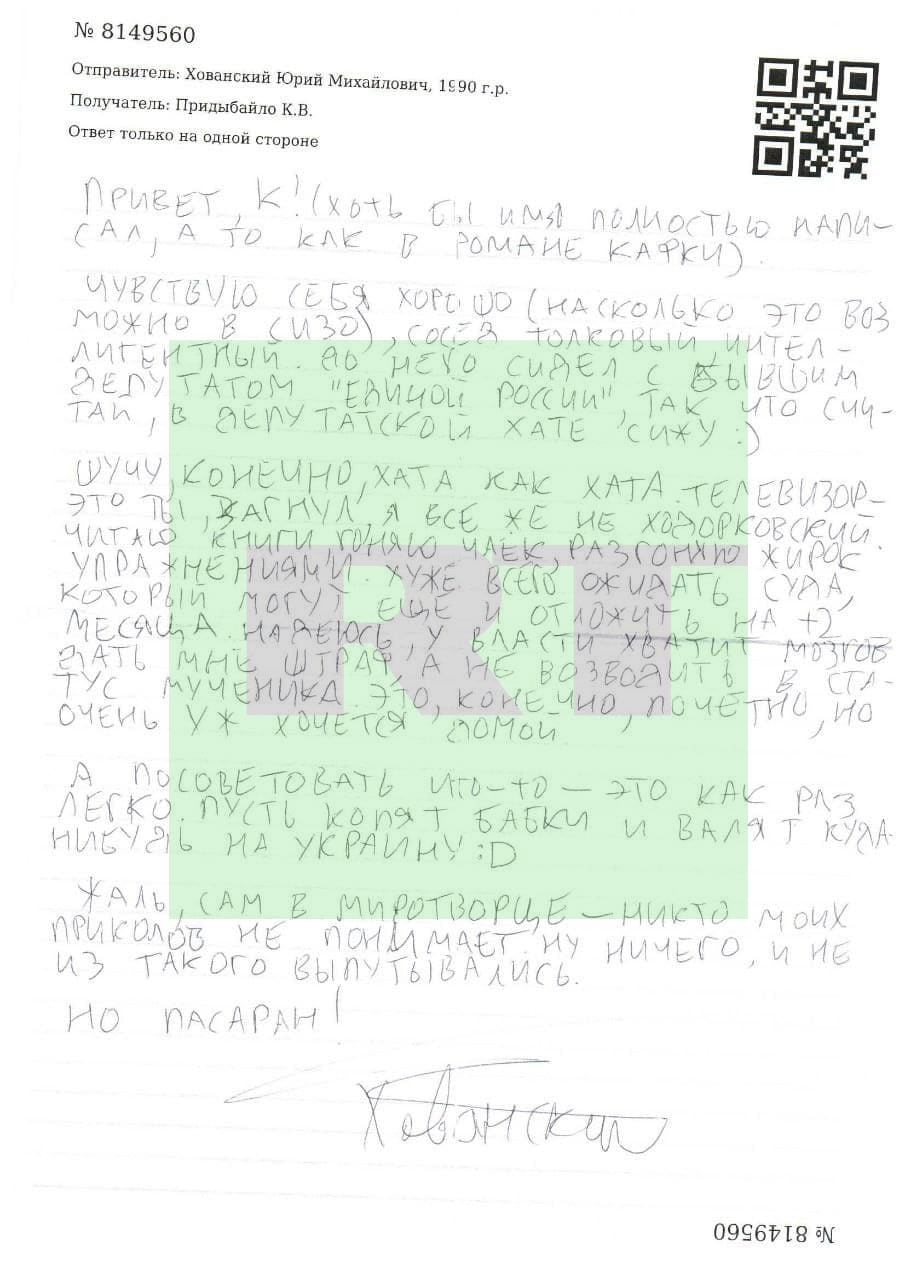 № 8149560
Отправитель: Хованский Юрий Михайлович, 1990 г.р.
Получатель: Придыбайло К.В.
Ответ только на одной стороне
ПРИВЕТ, К! (ХОТЬ БЫ ИМЯ ПОЛНОСТЬЮ НАПИ-
САЛ, А ТО КАК В РОМАНЕ КАФКИ).
ЧУВСТВУЮ СЕБЯ ХОРОШО (НАСКОЛЬКО ЭТО ВОЗ
МОЖНО В СИЗО), СОСЕД ТОЛКОВЫЙ, ИНТЕЛ-
ЛИГЕНТНЫЙ. ДО НЕГО СИДЕЛ С БЫВШИМ
ДЕПУТАТОМ "ЕДИНОЙ РОССИИ", ТАК ЧТО СЧИ-
ТАЙ, В ДЕПУТАТСКОЙ ХАТЕ СИЖУ :)
ШУЧУ, КОНЕЧНО, ХАТА КАК ХАТА. ТЕЛЕВИЗОР-
ЭТО ТЫ ЗАГНУЛ, Я ВСЕ ЖЕ НЕ ХОДОРКОВСКИЙ.
ЧИТАЮ КНИГИ, ГОНЯЮ ЧАЕК, РАЗГОНЯЮ ЖИРОК
УПРАЖНЕНИЯМИ. ХУЖЕ ВСЕГО ОЖИДАТЬ СУДА,
КОТОРЫЙ МОГУТ ЕЩЕ И ОТЛОЖИТЬ НА +2
МЕСЯЦА. НАДЕЮСЬ, У ВЛАСТИ ХВАТИТ МОЗГОВ
ДАТЬ МНЕ ШТРАФ, А НЕ ВОЗВОДИТЬ В СТА-
ТУС МУЧЕНИКА. ЭТО, КОНЕЧНО, ПОЧЕТНО, НО
ОЧЕНЬ УЖ ХОЧЕТСЯ ДОМОЙ
А ПОСОВЕТОВАТЬ ЧТО-ТО – ЭТО КАК РАЗ
ЛЕГКО. ПУСТЬ КОПЯТ БАБКИ И ВАЛЯТ КУДА-
НИБУДЬ НА УКРАИНУ :D
ЖАЛЬ, САМ В МИРОТВОРЦЕ – НИКТО МОИХ
ПРИКОЛОВ НЕ ПОНИМАЕТ. НУ НИЧЕГО, И НЕ
ИЗ ТАКОГО ВЫПУТЫВАЛИСЬ.
НО ПАСАРАН!
Хованский
RT
№ 8149560